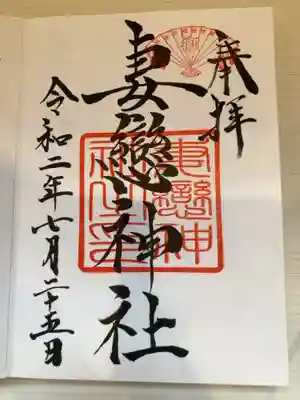 奉拝
妻戀神社
令和二年七月二十五日
妻戀神社之印